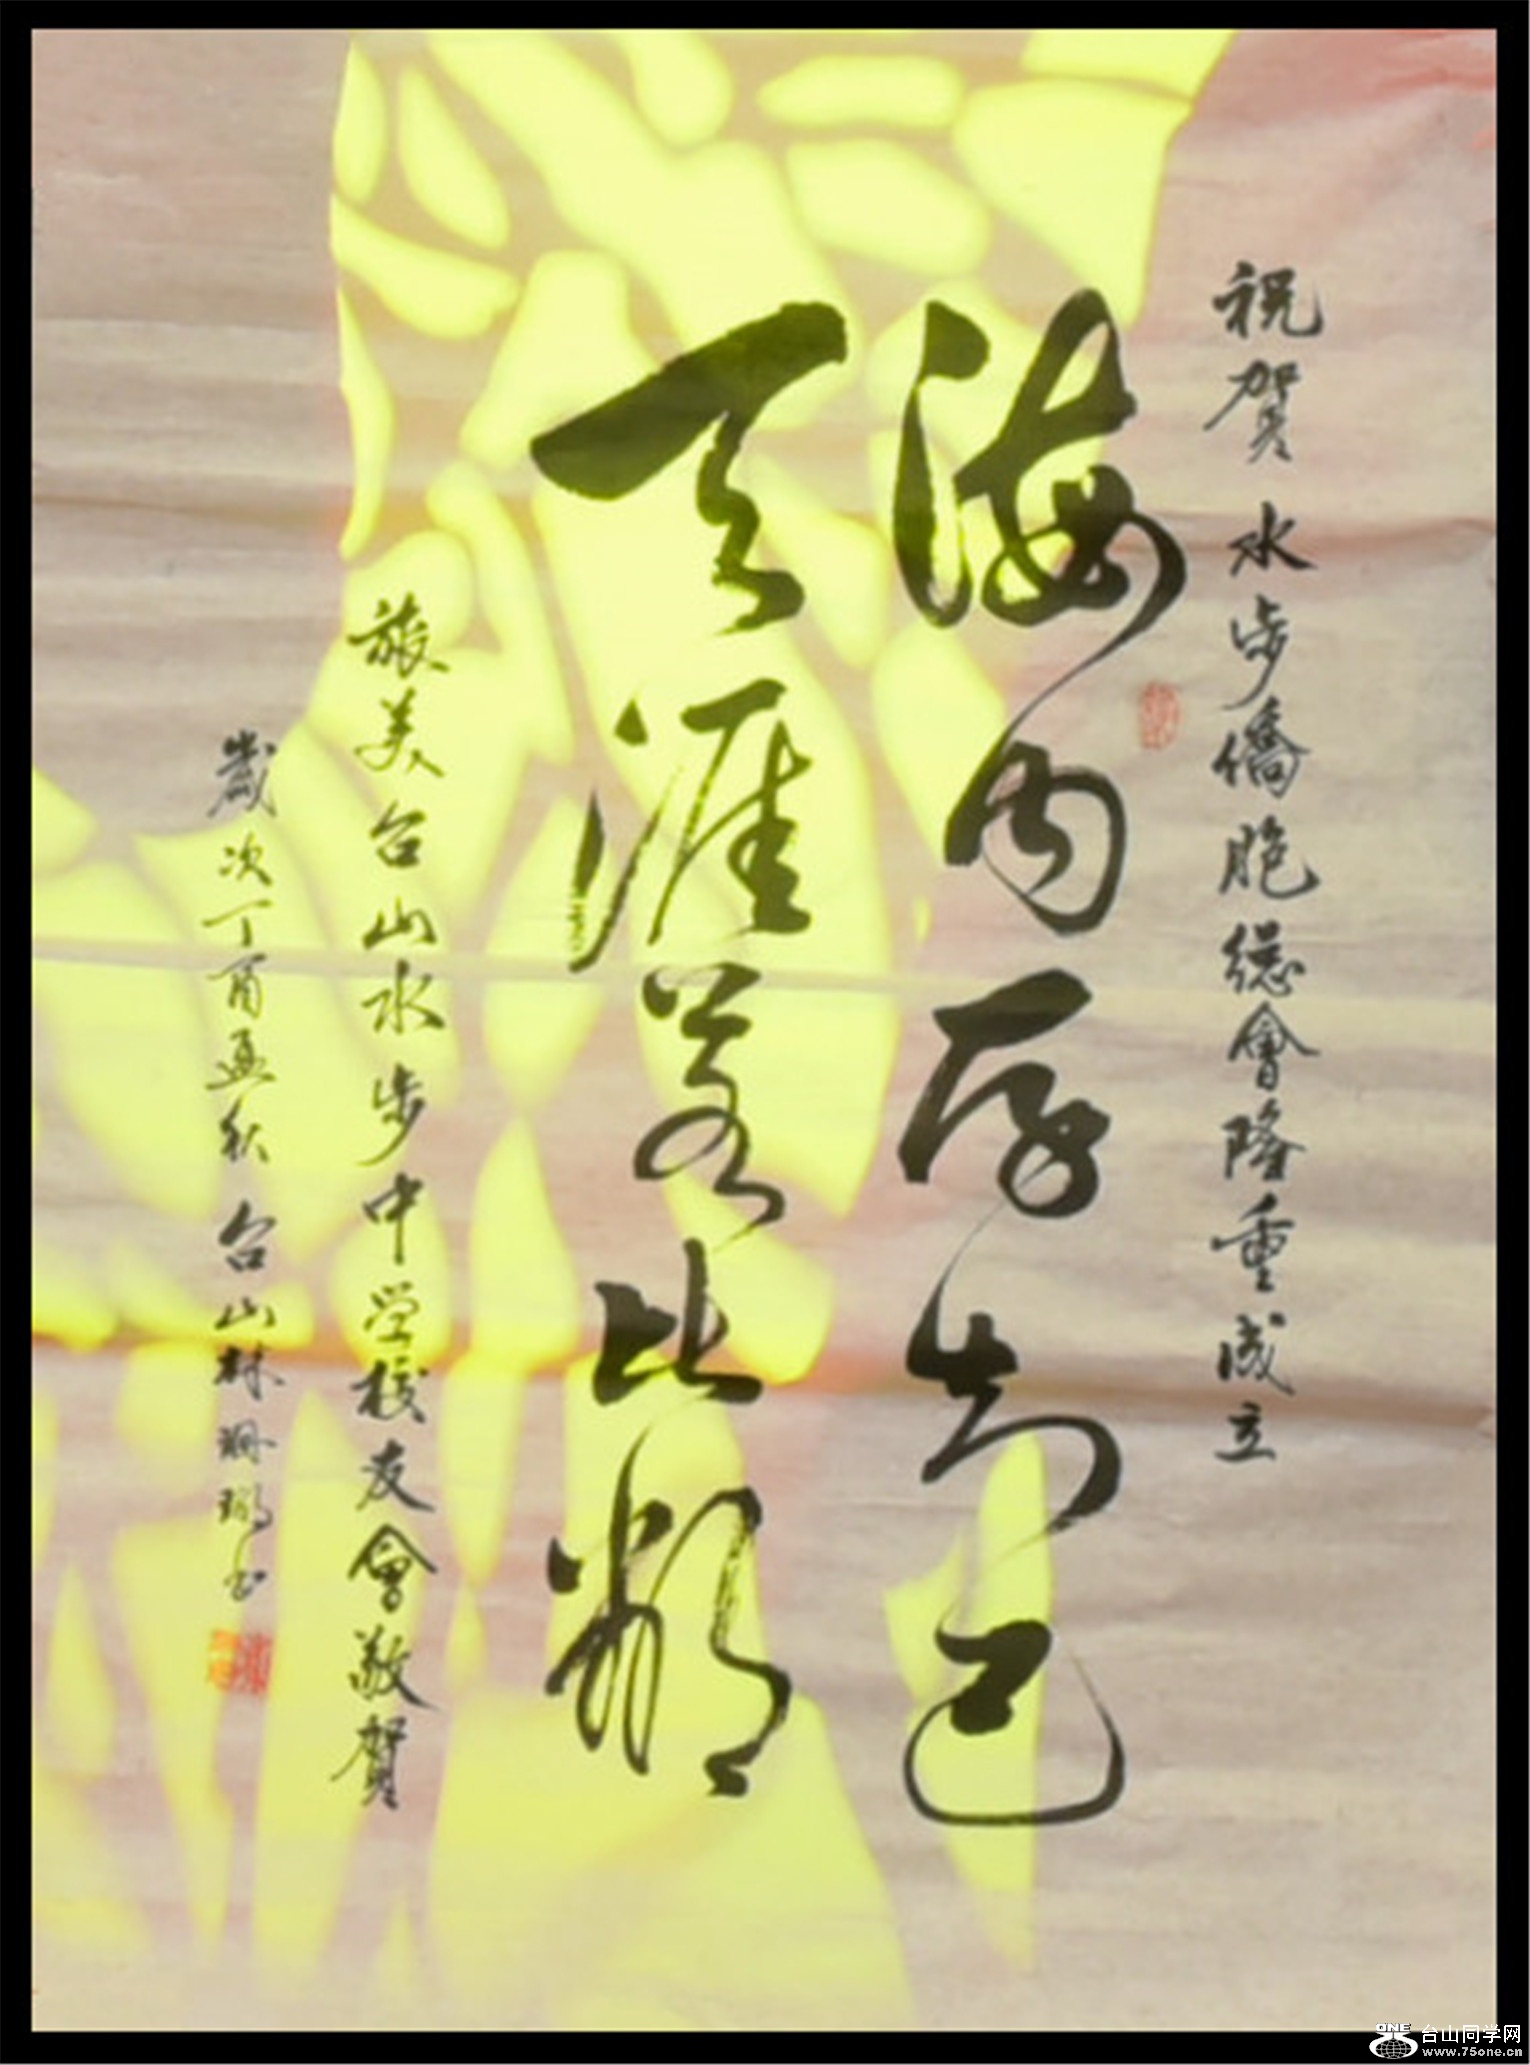 祝贺水步僑胞總會隆重成立
海内存知己
天涯若比鄰
旅美台山水步中学校友會敬賀
歲次丁酉孟秋台山林
ONE 台山同学网
www.75one.cn